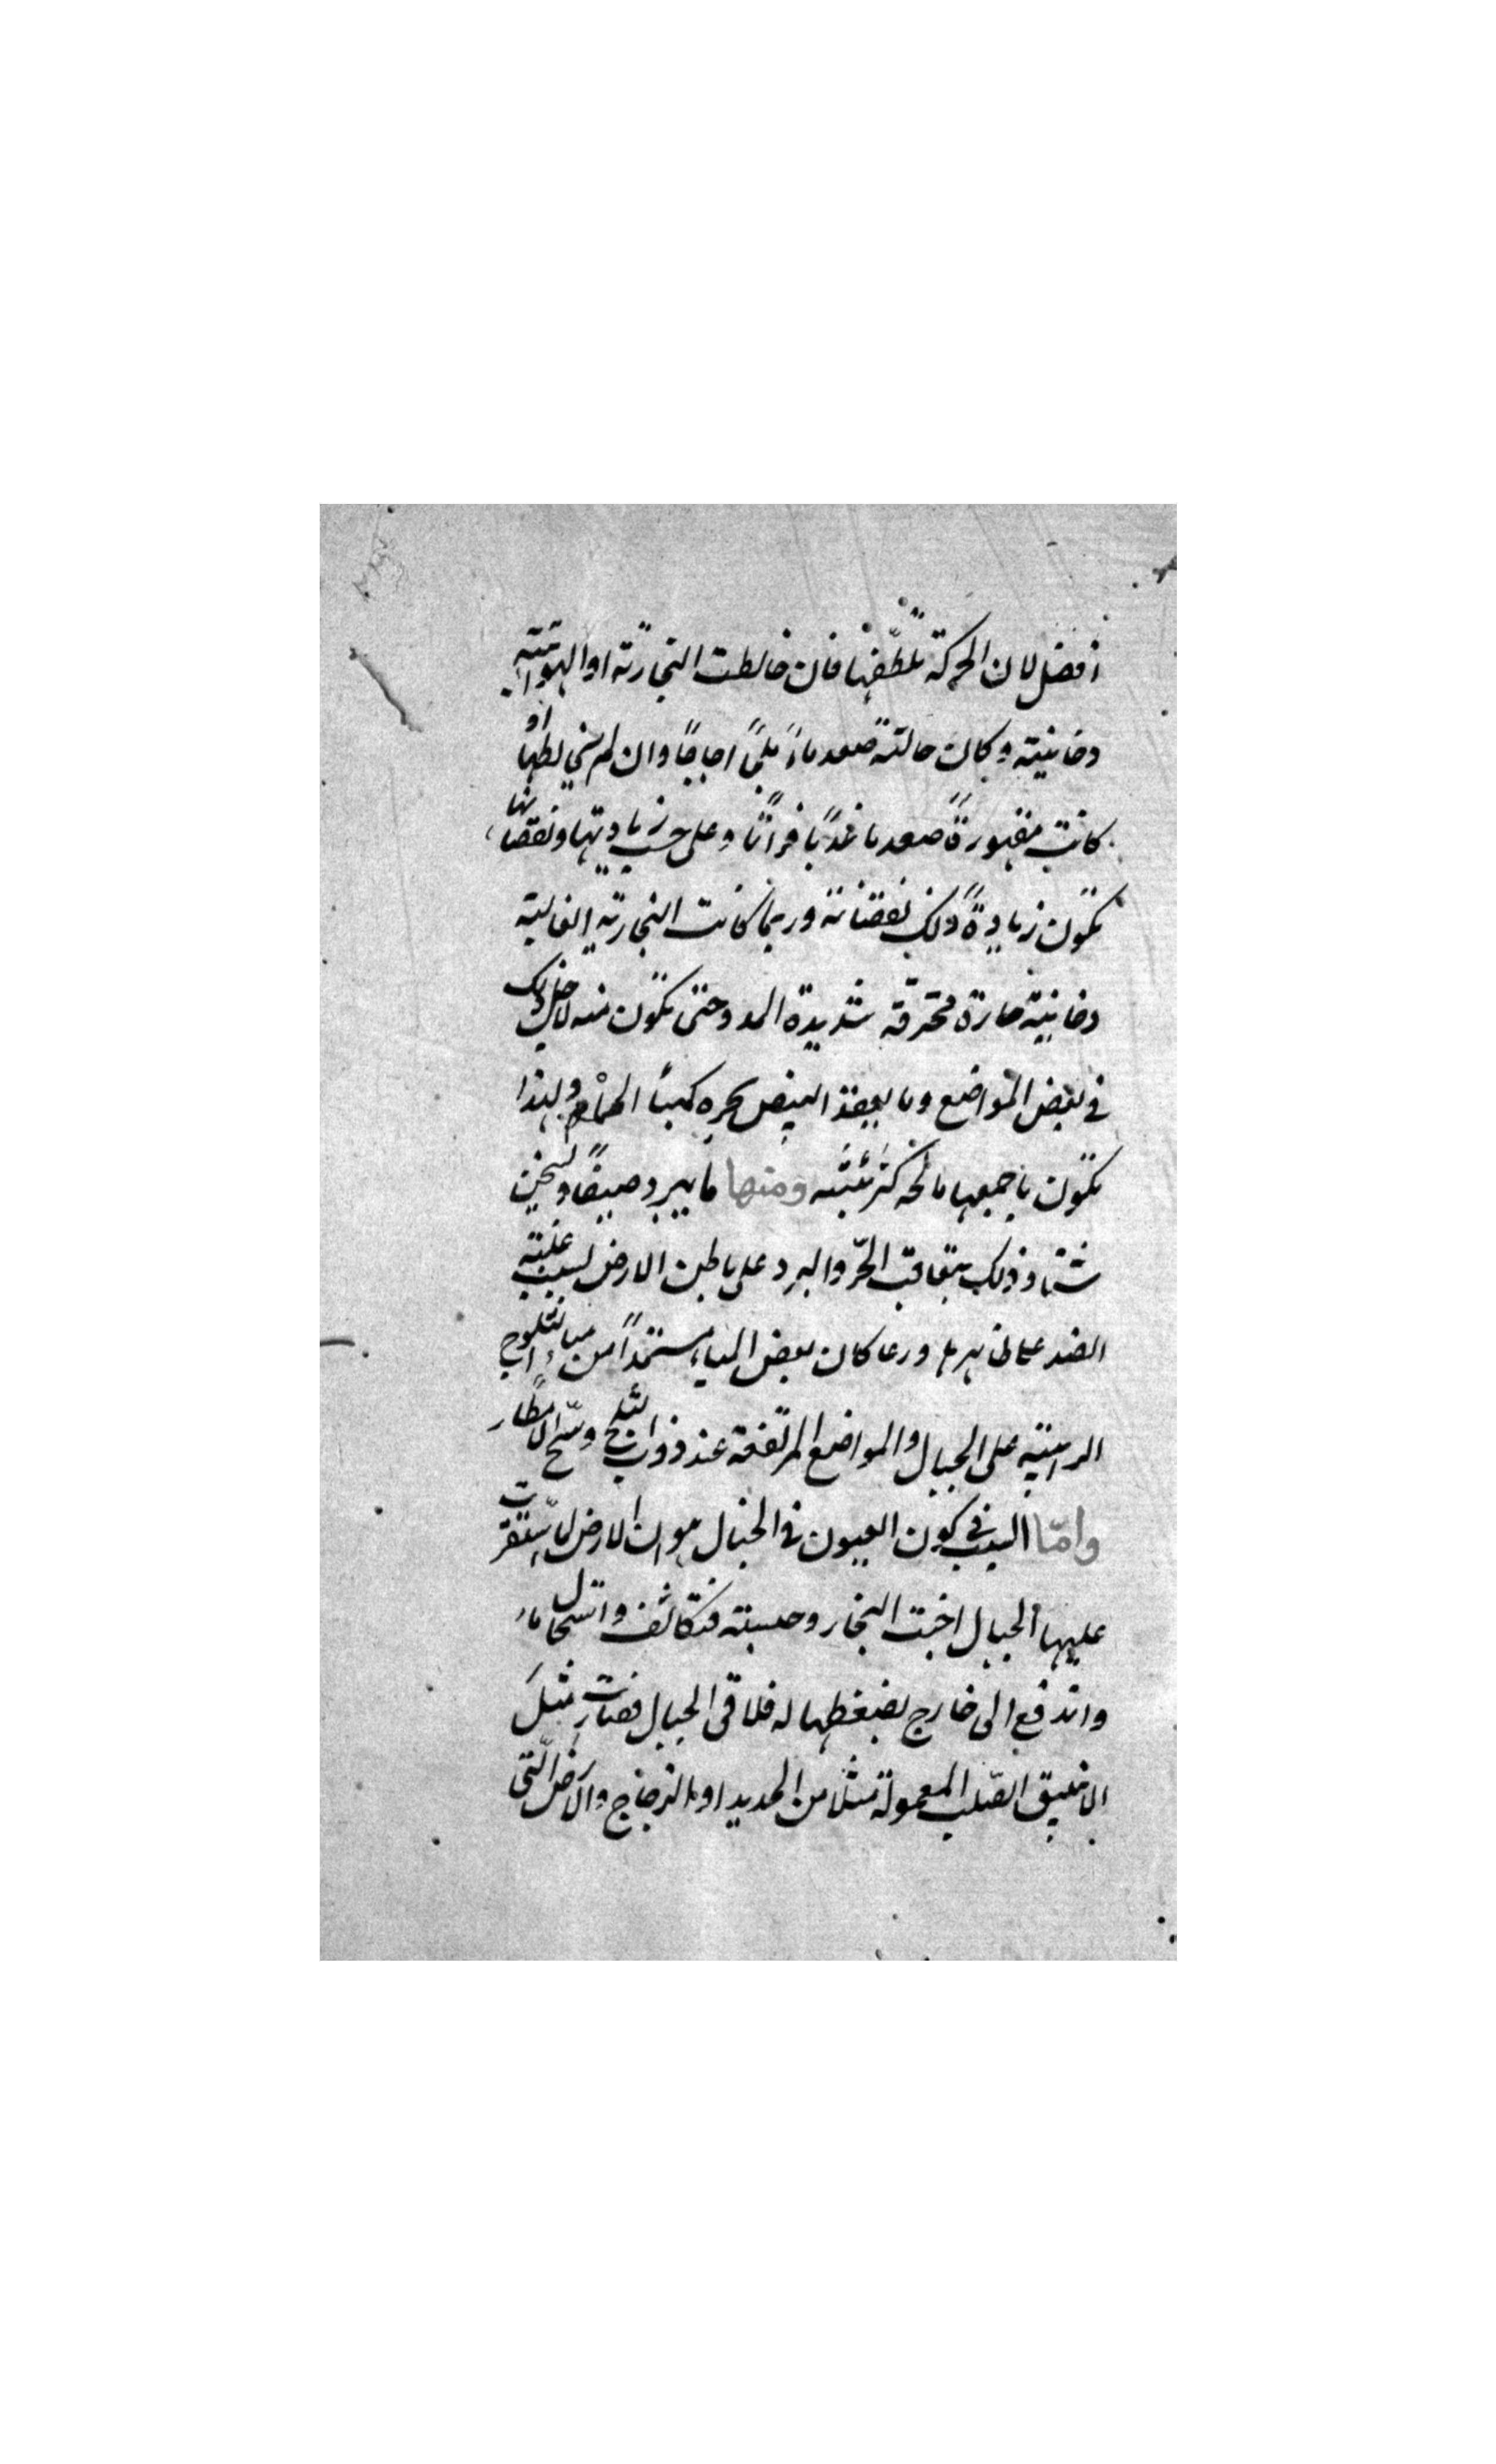 افضل لان الحركة تلطّفها فان خالطت البخاريّة او الهوائيّة
دخانية وكان حالته صعد ماءً ملحًا اجاجًا وان لم يخالطها او
كانت مقهورةً صعد ما عذبًا فراتًا وعلى حسب زيادتها ونقصانها
تكون زيادةً ذلك نقصانه وربما كانت البخارية الغالبة
دخانية حارة محترقة شديدة المد وحتى تكون منه لاجل ذلك
في بعض المواضع وما يعقد البيض بحره كمياه الحمام ولهذا
تكون باجمعها مالحة كبريتية ومنها ما يبرد صيفًا ويسخن
شتا وذلك بتعاقب الحرّ والبرد على باطن الارض لسبب غلبة
الضد على ظاهرها وربما كان بعض المياه مستمدًا من مياه الثلوج
الراسية على الجبال والمواضع المرتفعة عند ذوب الثلج وسحّ الامطار
وامّا السبب في كون العيون في الجبال هو ان الارض لما استقرت
عليها الجبال اخبت البخار وحسبته فتكاثف واستحال ماء
واندفع الى خارج بضغطها له فلاقى الجبال فصارت مثل
الانبيق الصّلب المعمولة مثلا من الحديد او الزجاج والارض الّتي